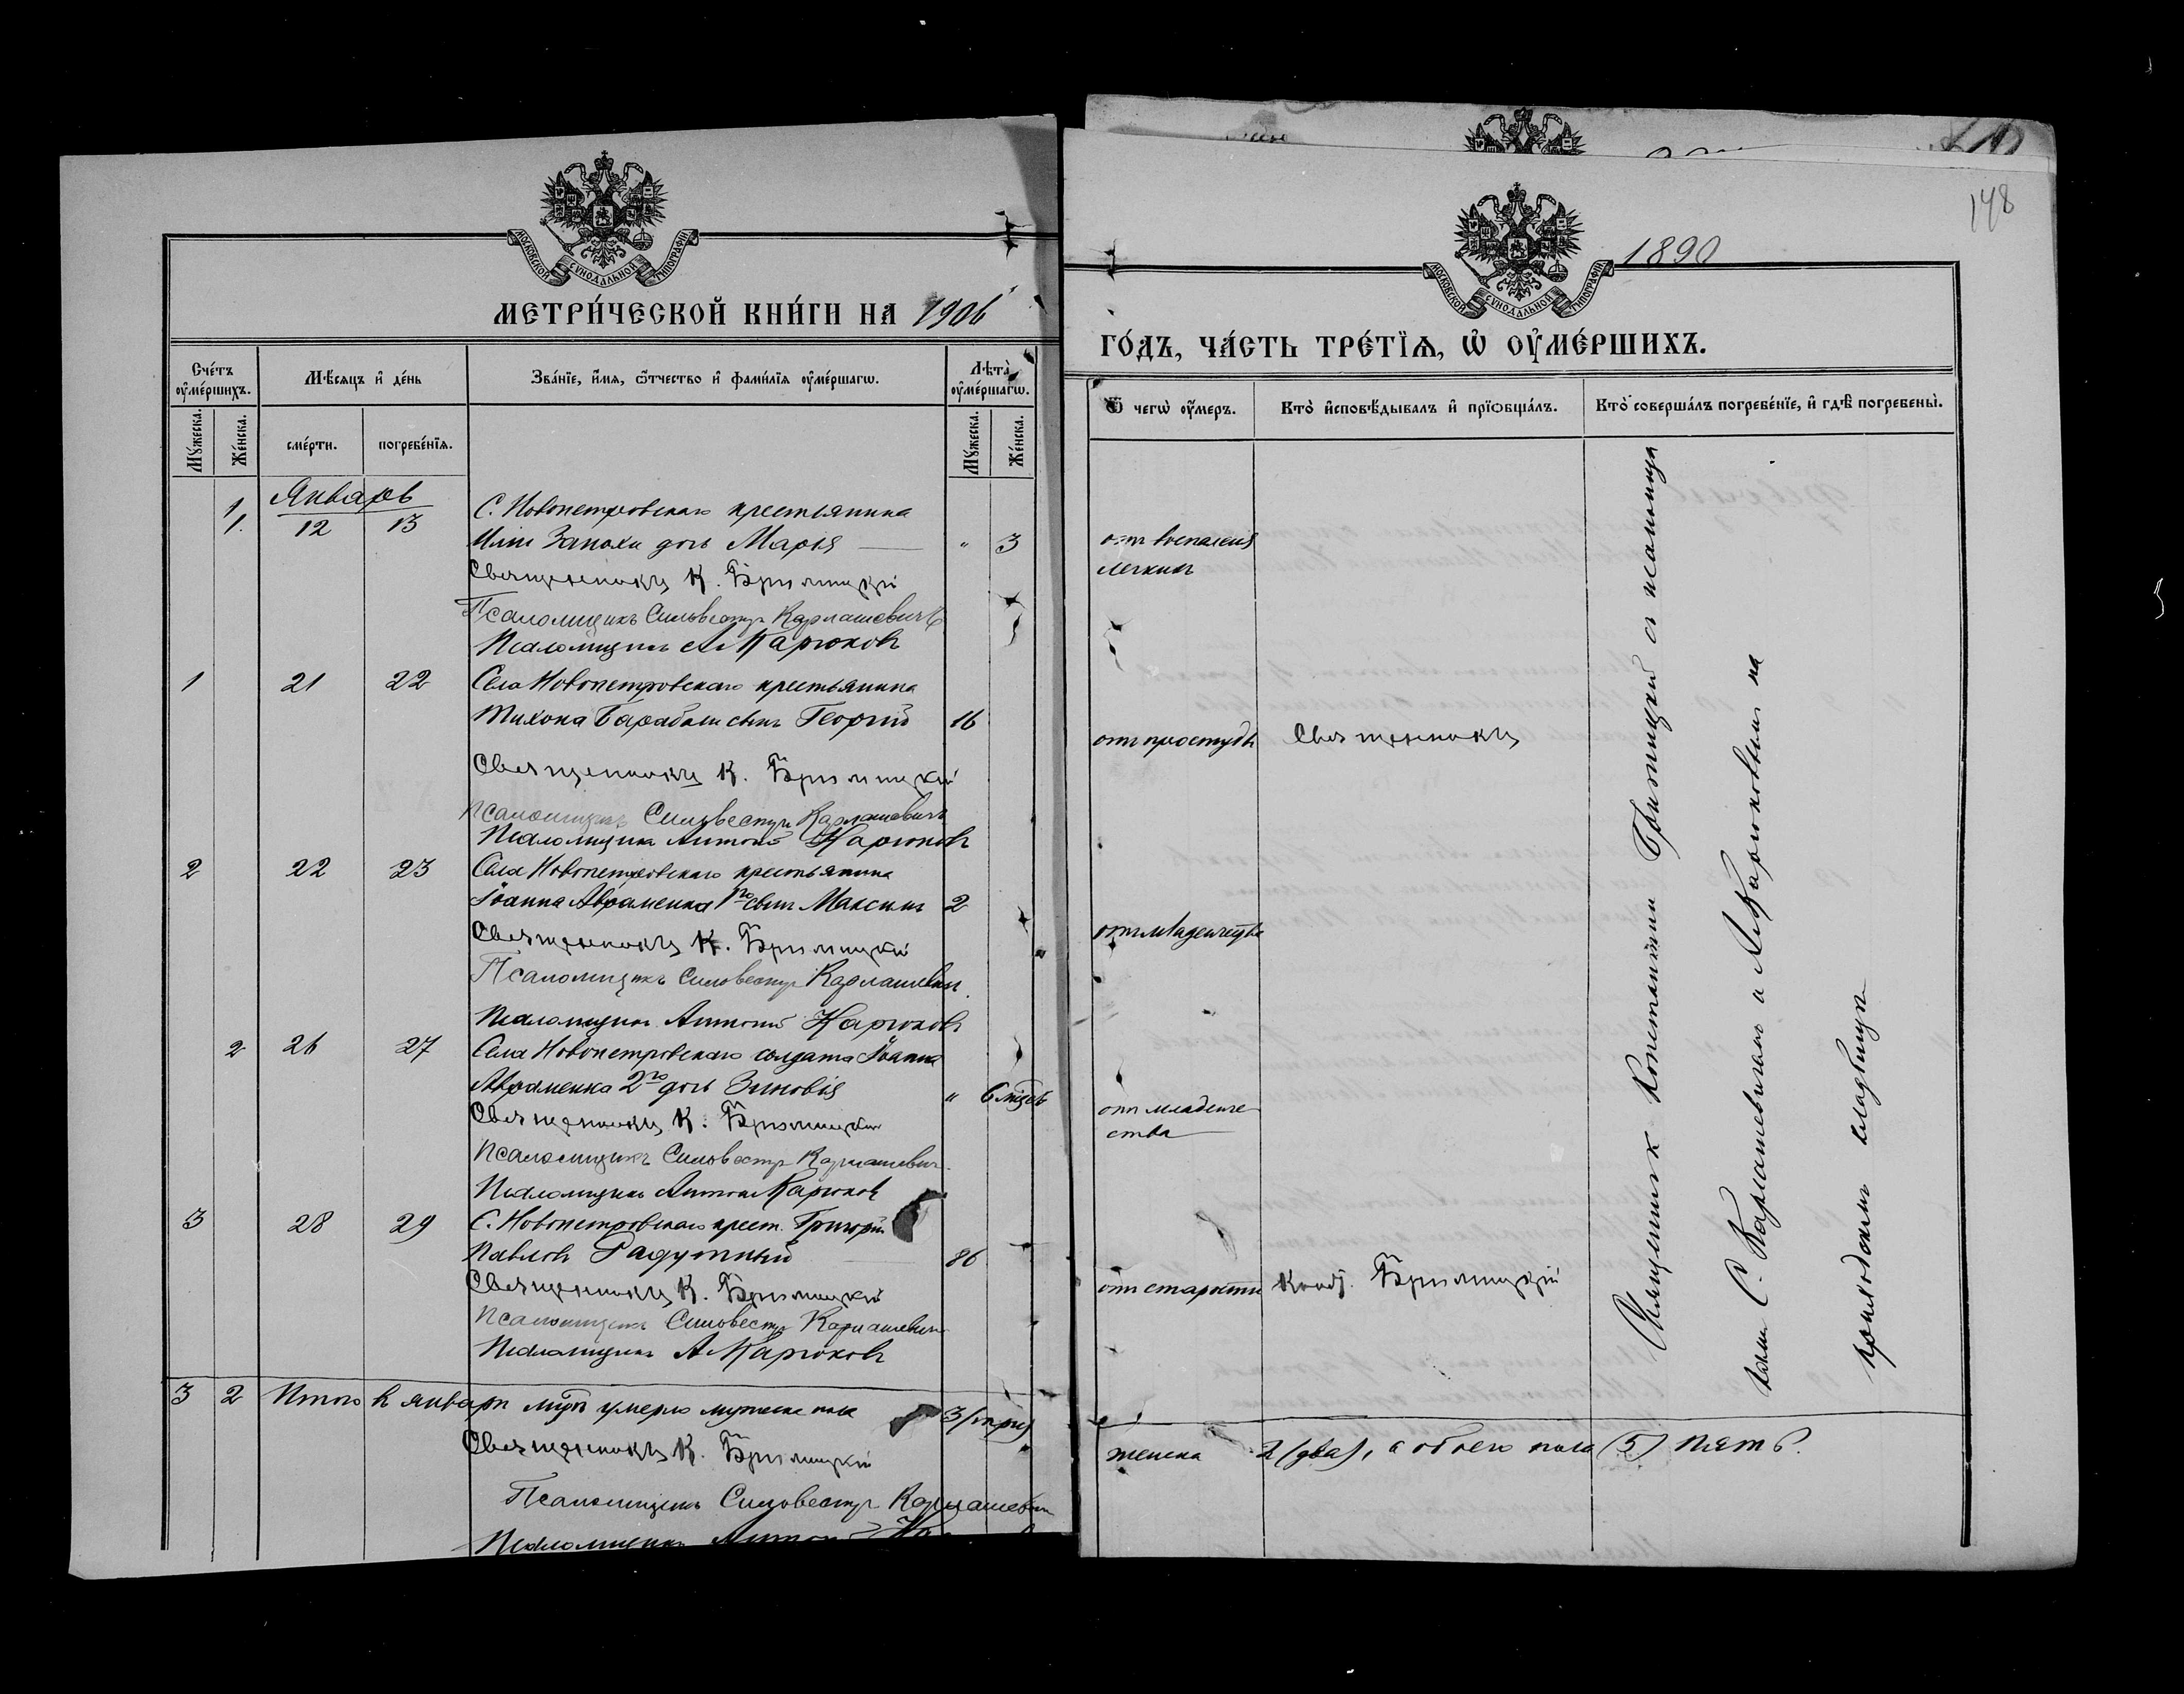 МОСКОВСКОЙ СѴНОДАЛЬНОЙ ТИПОГРАФІИ
МЕТРИ́ЧЕСКОЙ КНИ́ГИ НА 1906
Сче́тъ оу҆ме́ршихъ.
Мѣ́сяцъ и҆ де́нь
Зва́нїе, и҆́мѧ, ѻ҆́тчество и҆ фами́лїѧ оу҆ме́ршагѡ.
Лѣ́та оу҆ме́ршагѡ.
Мꙋ́жеска.
Же́нска.
сме́рти.
погребе́нїѧ.
Мꙋ́жеска.
Же́нска.
Январь
1. 12 13 С. Новопетровскаго крестьянина
Иліи Запохи дочь Марія " 3
Священникъ К. Гримицкій
Псаломщикъ Сильвестръ Кармашевичъ
Псаломщикъ А Карюковъ
1 21 22 Села Новопетровскаго крестьянина
Тихона Барабаш сынъ Георгій 16
Священникъ К. Гримицкій
Псаломщикъ Сильвестръ Кармашевичъ
Псаломщикъ Антоній Карюковъ
2 22 23 Села Новопетровскаго крестьянина
Іоанна Авраменка 1го сынъ Максимъ 2
Священникъ К. Гримицкій
Псаломщикъ Сильвестръ Кармашевич.
Псаломщикъ Антоній Карюковъ
2 26 27 Села Новопетровскаго солдата Іоанна
Авраменка 2го дочь Зиновія " 6 мцевъ
Священникъ К. Гримицкій
Псаломщикъ Сильвестръ Кармашевич.
Псаломщикъ Антоній Карюковъ
3 28 29 С. Новопетровскаго крест. Григорій
Павловъ Радутный 86
Священникъ К. Гримицкій
Псаломщикъ Сильвестръ Кармашевичъ
Псаломщикъ А Карюковъ
3 2 Итого въ январѣ мцѣ умерло мужеска пола 3 (три)
Священникъ К. Гримицкій
Псаломщикъ Сильвестръ Кармашевич
Псаломщикъ Антон
148
1890
МОСКОВСКОЙ СѴНОДАЛЬНОЙ ТИПОГРАФІИ
ГО́ДЪ, ЧА́СТЬ ТРЕ́ТЇѦ, Ѡ҆ ОУ҆МЕ́РШИХЪ.
Ѿ чегѡ̀ оу҆́меръ.
Кто̀ и҆сповѣ́дывалъ и҆ прїѻбща́лъ.
Кто̀ соверша́лъ погребе́нїе, и҆ гдѣ̀ погребены̀.
отъ воспаленія
легкихъ
отъ простуды Священникъ
отъ младенчества
отъ младенче
ства
отъ старости К. Гримицкій
Священникъ Константинъ Гримицкій съ псаломщи
ками С. Кармашевичемъ и А. Карюковымъ на
приходскомъ кладбищѣ
женска 2 (два), а обоего пола (5) пять.